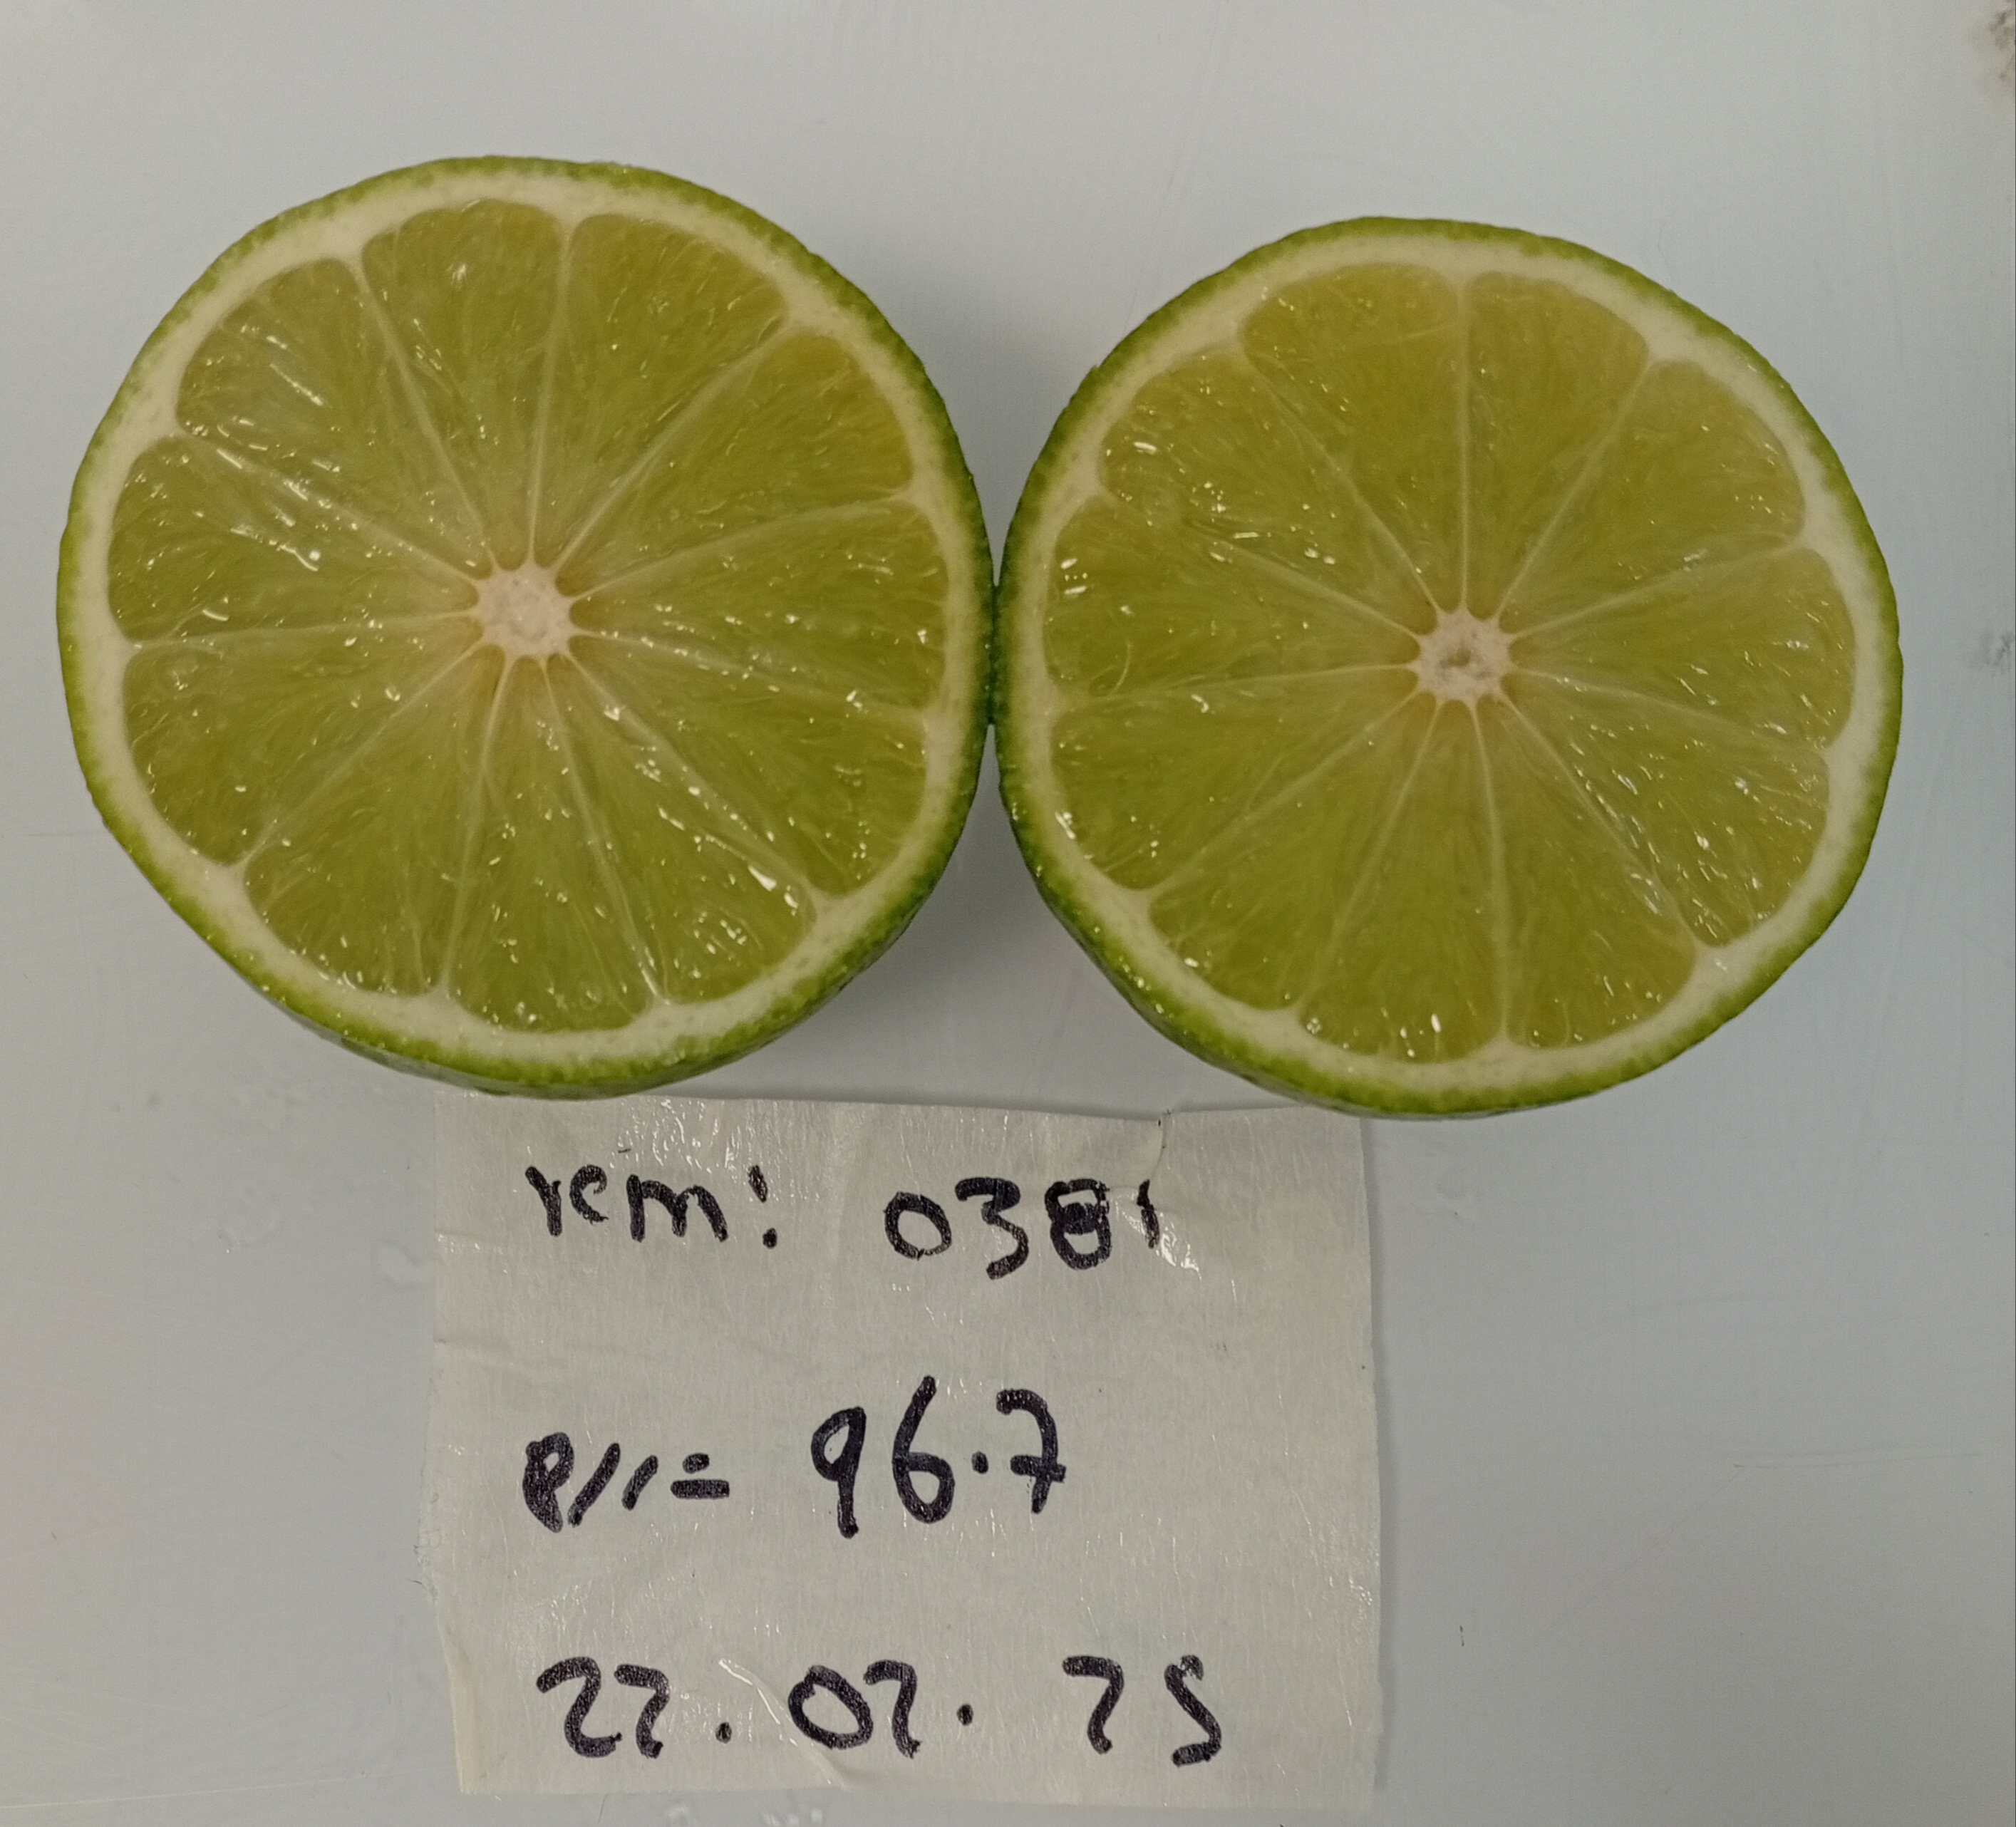 rem: 0381
P//= 96.7
22.02.25